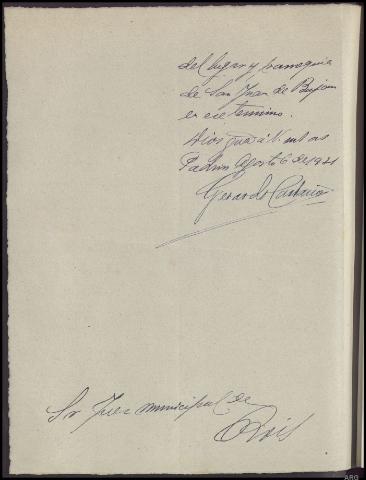 del lugar y parroquia
de San Juan de
en ese termino.
Dios gue á V. ms as
Padron Agosto 6 de 1921
Gerardo
Sr Juez municipal de
Rois
ARG